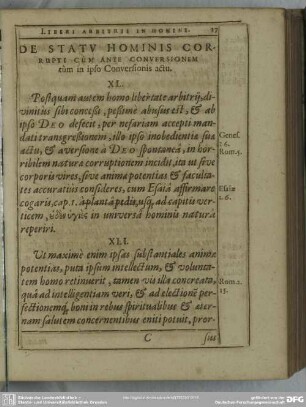 LIBERI ARBITRII IN HOMINE. 17
DE STATV HOMINIS COR-
RVPTI CUM ANTE CONVERSIONEM
tùm in ipso Conversionis actu.
XL.
Postquam autem homo libertate arbitrij, di-
vinitùs sibi concessâ, pessimè abusus est, & ab
ipso DEO defecit, per nefariam accepti man-
dati transgressionem, illo ipso inobedientiæ suæ
actu, & aversione à DEO spontaneâ, in hor-
ribilem naturæ corruptionem incidit, ita ut sive
corporis vires, sive animæ potentias & faculta-
tes accuratiùs consideres, cum Esaiâ affirmare
cogaris, cap. 1. à plantâ pedis, usq, ad capitis ver-
ticem, in universâ hominis naturâ
reperiri.
Genes.
Rom. 5.
Esaiæ
1. 6.
XLI.
Ut maximè enim ipsas substantiales animæ
potentias, puta ipsum intellectum, & volunta-
tem homo retinuerit, tamen vis illa concreata,
quâ ad intelligentiam veri, & ad electionē per-
fectionemq, boni in rebus spiritualibus & æter-
nam salutem concernentibus eniti potuit, pror-
Rom. 2.
15.
C sus